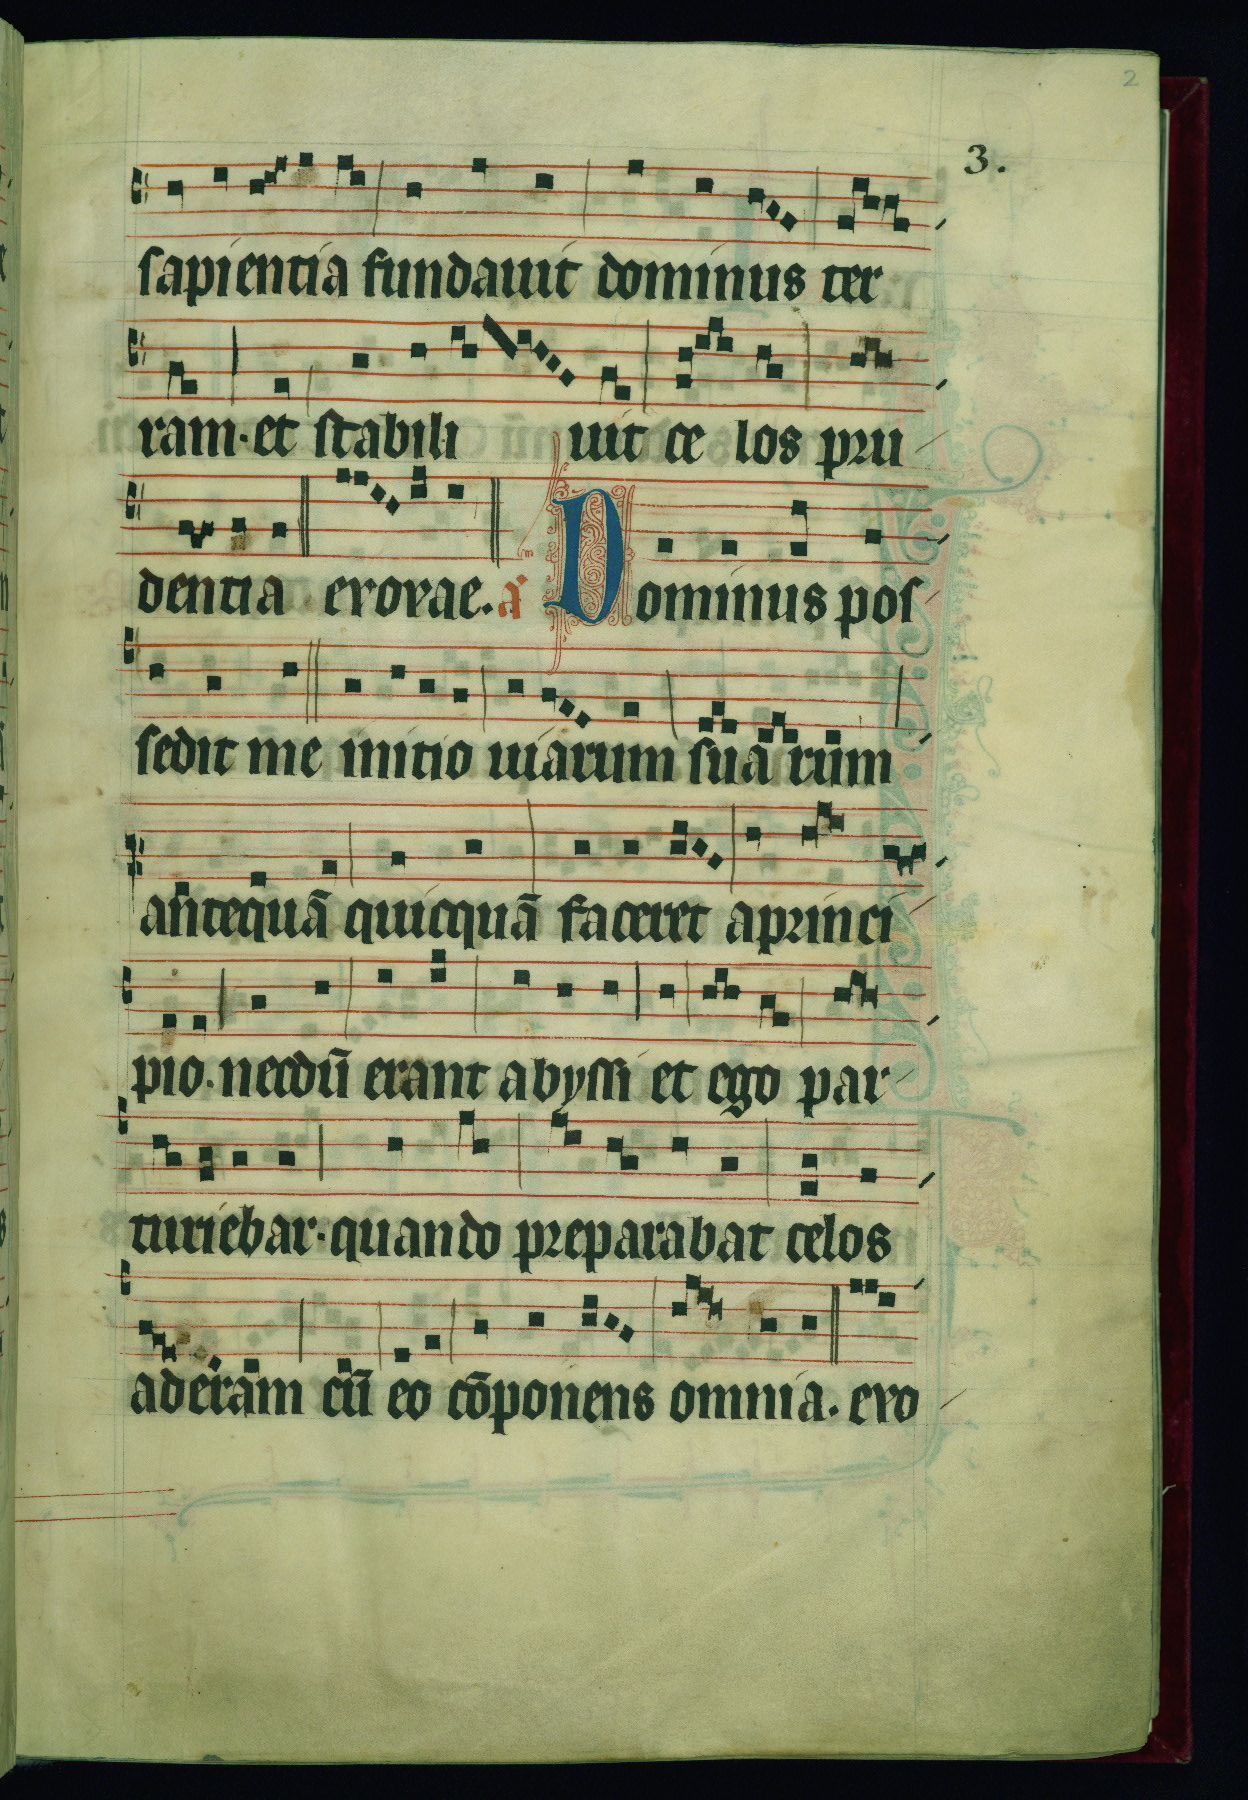 2
3.
sapientia fundauit dominus ter
ram. et stabili uit ce los pru
dentia evovae. a Dominus pos
sedit me initio uiarum sua rum
antequā quicquā faceret a princi
pio. necdū erant abyssi et ego par
turiebar. quando preparabat celos
aderam cū eo cōponens omnia. evo